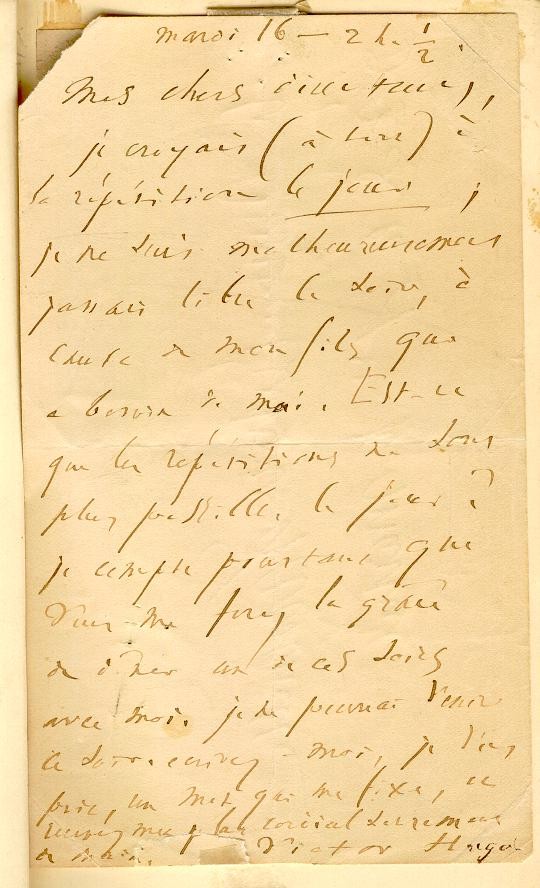 mardi 16 — 2 h. 1/2.
Mes chers
je croyais (à tort) à
la répétition le jour ;
je ne suis malheureusement
jamais libre le soir, à
cause de mon fils qui
a besoin de moi. Est-ce
que les répétitions ne sont
plus possibles le jour ?
je compte pourtant que
vous me ferez la grâce
de dîner un de ces soirs
avec moi. je ne pourrai venir
ce soir. écrivez-moi, je vous
prie, un mot qui me fixe, et
recevez mon plus cordial serrement
de main. Victor Hugo